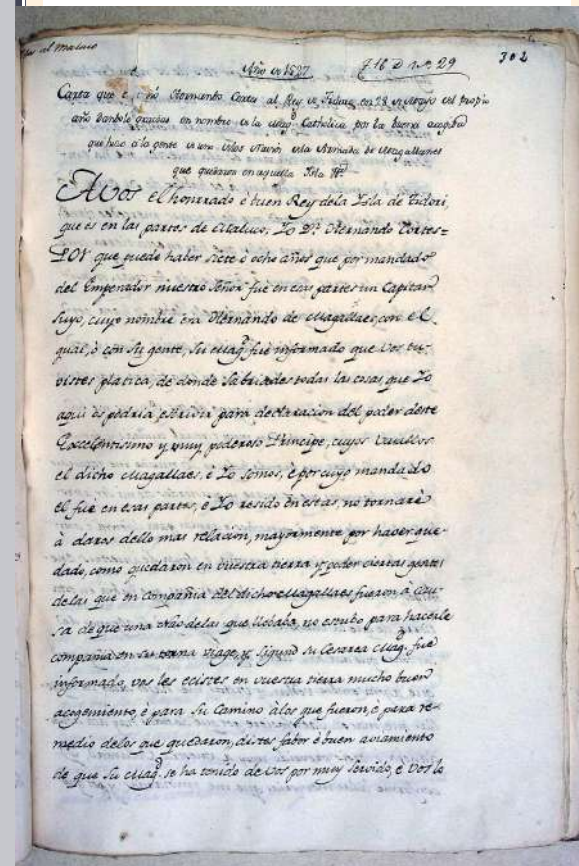 al Maluco
302
Año de 1527 J 16 D nº 29
Carta que Hernando Cortes al Rey de Tidori, en 28 de Mayo del propio
año dandole gracias en nombre de la Mag.d Catholica por la buena acogida
que hizo á la gente de uno de los Navios de la Armada de Magallanes
que quedaron en aquella Isla
A Vos el honrrado é buen Rey dela Isla de Tidori,
que es en las partes de Maluco; Yo Dn. Hernando Cortes=
POR que puede haber siete ó ocho años que por mandado
del Emperador nuestro Señor fué en esas partes un Capitan
suyo, cuyo nombre era Hernando de Magallaes, con el
qual, ó con su gente, su Mag.d fué informado que vos tu-
vistes platica, de donde sabriades todas las cosas que Yo
aquí os podria escrivir para declaracion del poder deste
Excelentisimo y muy poderoso Principe, cuyos vasallos
el dicho Magallaes, é Yo somos, é por cuyo mandado
el fué en esas partes, é Yo resido en estas, no tornaré
à daros dello mas relacion, mayormente por haver que-
dado, como quedaron en vuestra tierra y poder ciertas gentes
delas que en compañia del dicho Magallaes fueron, à cau-
sa de que una Náo delas que llebaba, no estubo para hacerle
compañia en su torna viage, y sigund su Cesarea Mag.d fué
informado, vos les ecistes en vuestra tierra mucho buen
acogimiento, é para su camino álos que fueron, é para re-
medio delos que quedaron, distes fabor é buen aviamiento
de que su Mag.d se ha tenido de vos por muy servido, é vos lo